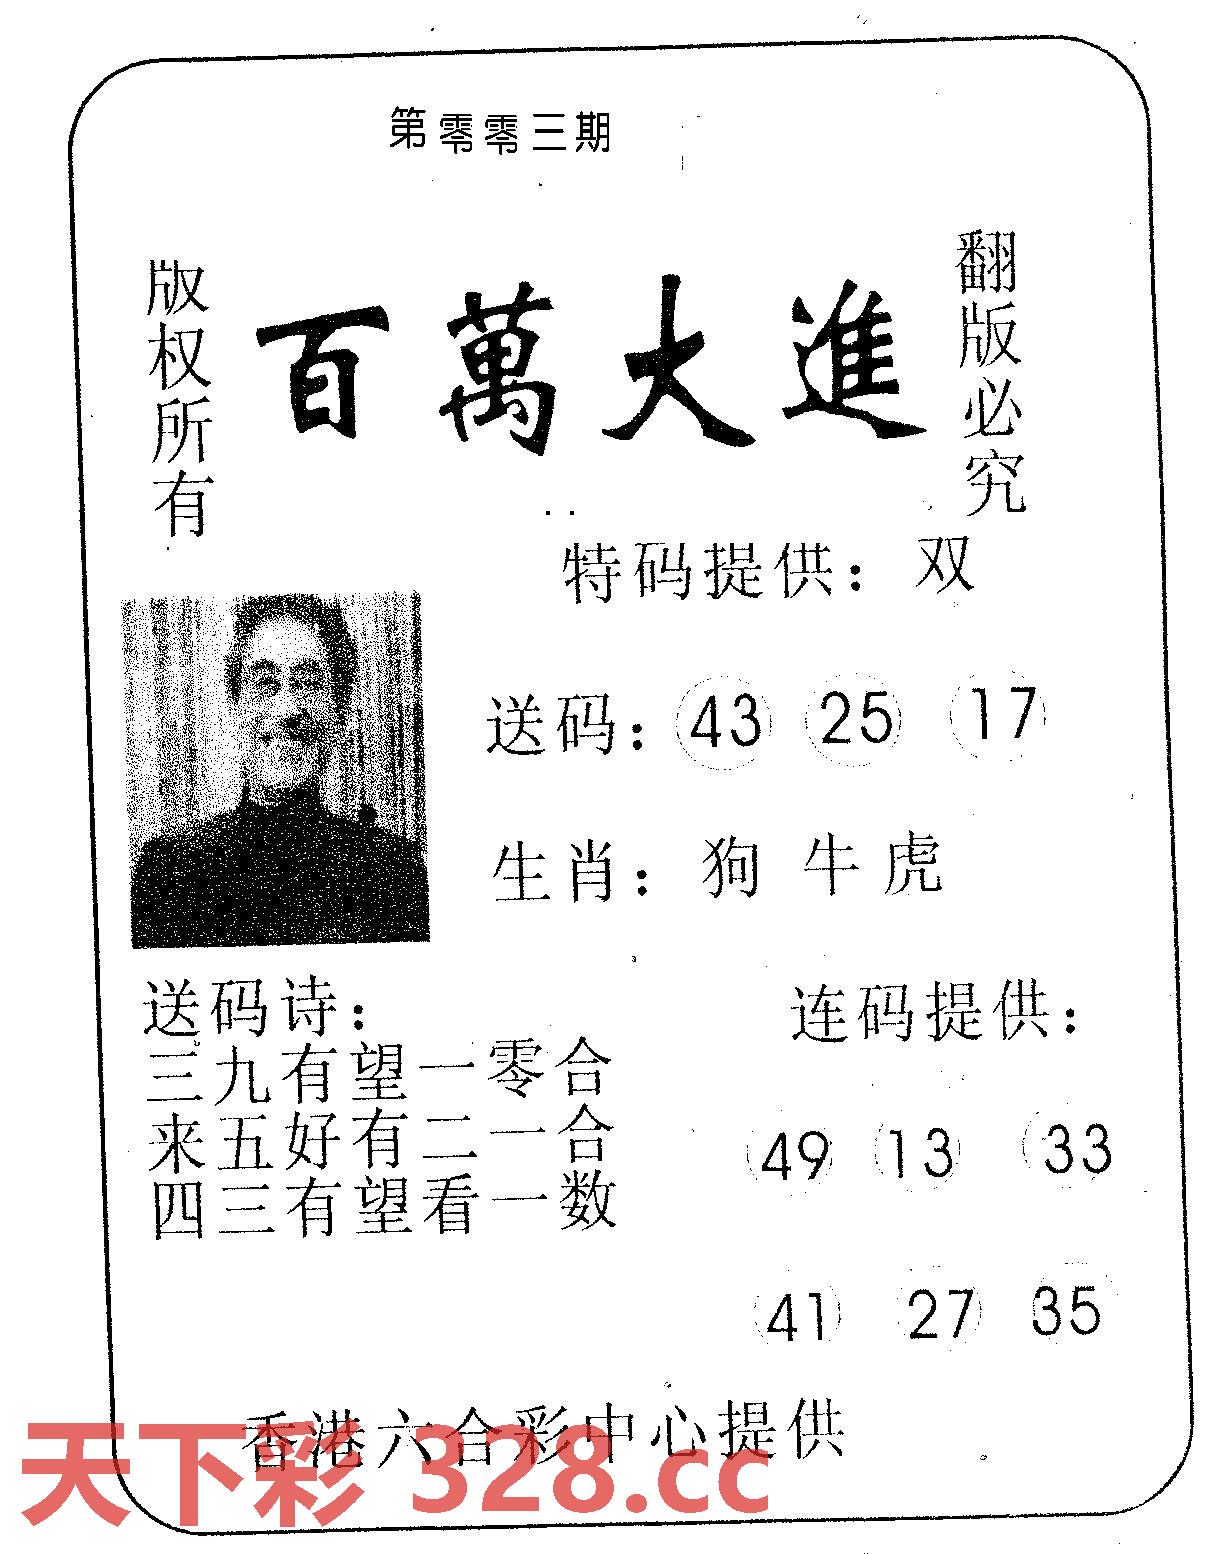 第零零三期
版权所有
百萬大進
翻版必究
特码提供：双
送码：43 25 17
生肖：狗 牛 虎
送码诗：
三九有望一零合
来五好有二一合
四三有望看一数
连码提供：
49 13 33
41 27 35
香港六合彩中心提供
天下彩 328.cc